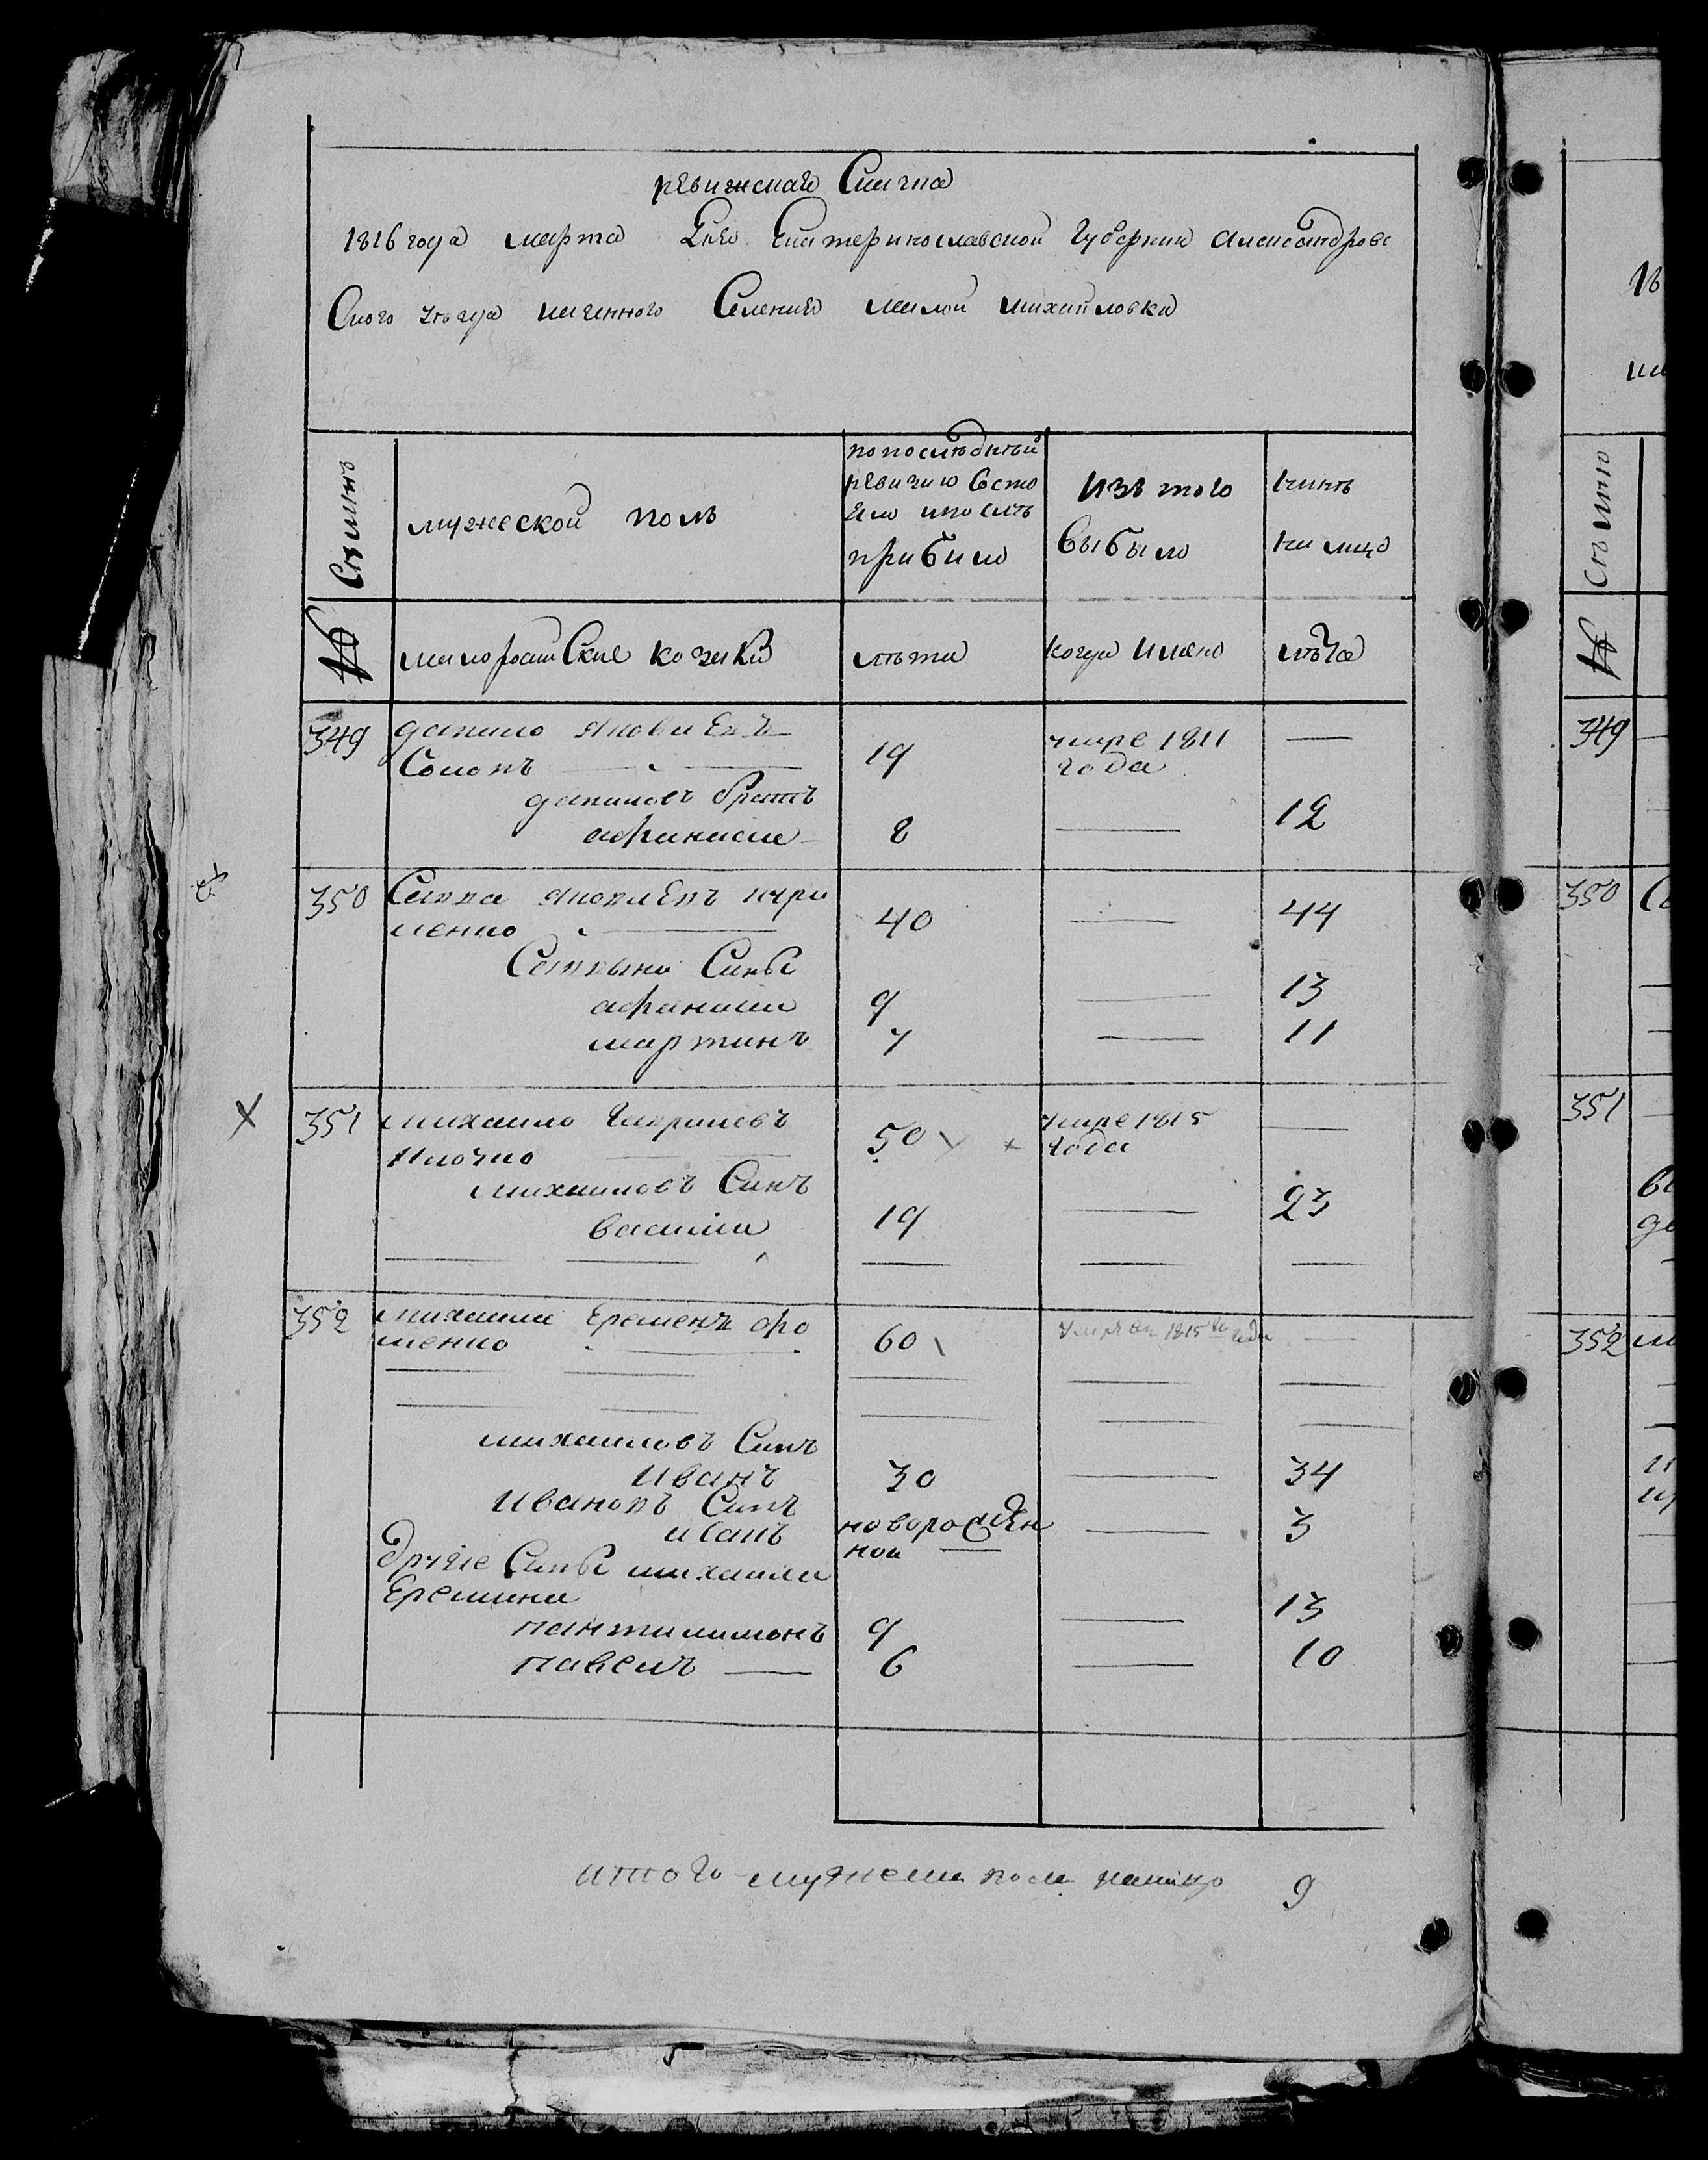 ревижская Скаска
1816 года марта дня Екатеринославской Губернии Александров
Ского уезда казенного Селения малой михайловки
Семьи
мужеской полъ
по последней
ревизии Состо
яло и после
прибило
изъ того
выбыло
ныне
на лицо
№
малоросийские козаки
лета
когда имено
лета
349
данило Яковлевъ
19
умре 1811
—
года
даниловъ братъ
афанасий
8
—
12
350
40
—
44
менко
Сыны
афанасий
9
—
13
мартинъ
7
—
11
351
михайло Гавриловъ
50
умре 1815
—
года
михайловъ Синъ
василий
19
—
23
352
михайла Еременъ фро
60
1815
менко
михайловъ Синъ
иванъ
30
—
34
ивановъ Синъ
исакъ
новорожден
—
3
ной
другие Сины михайла
Еремина
пантилимонъ
9
—
13
павелъ
6
—
10
итого мужеска пола налицо 9
Семьи
№
349
350
351
352